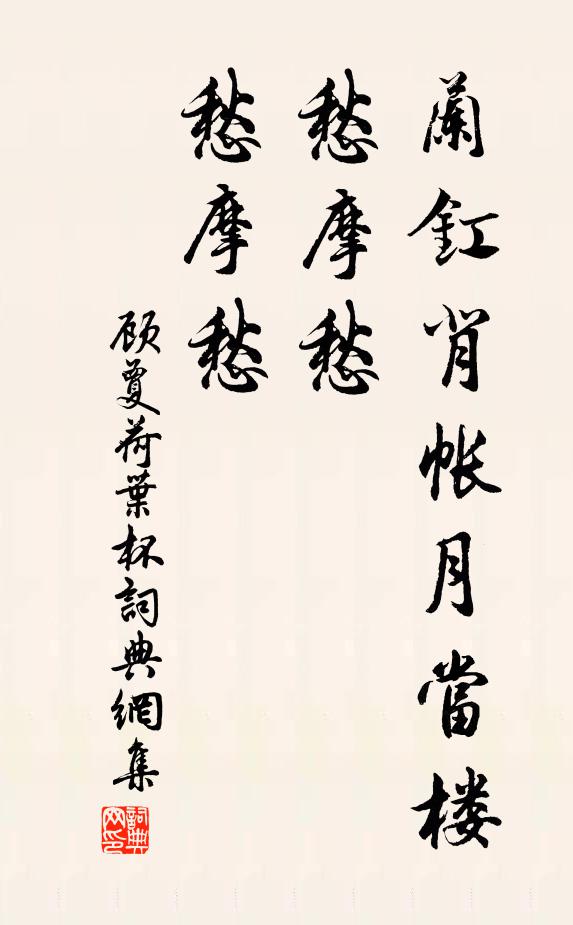 蘭釭背帳月當楼
愁摩愁
愁摩愁
顾敻荷葉杯詞典網集
詞典網印